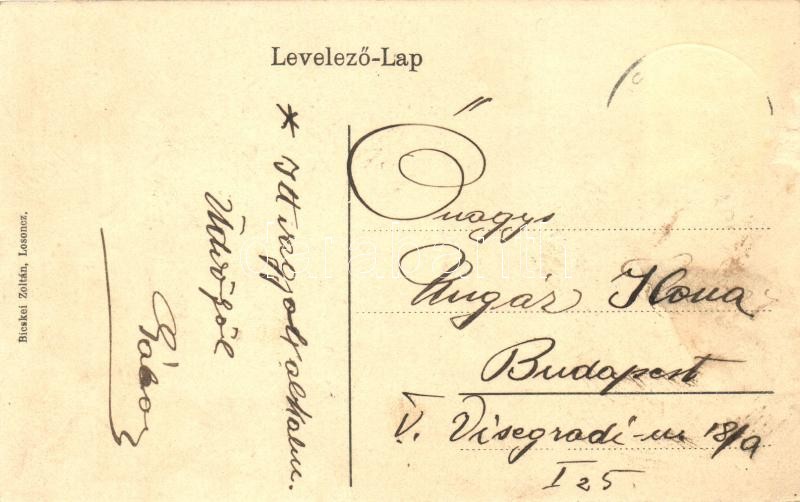 Levelező-Lap
* Itt vagyok
Üdvözöl
Gábor
Őnagys
Ungár Ilona
Budapest
V. Visegradi-u 18/a
I 25.
Bicskei Zoltán, Losoncz.